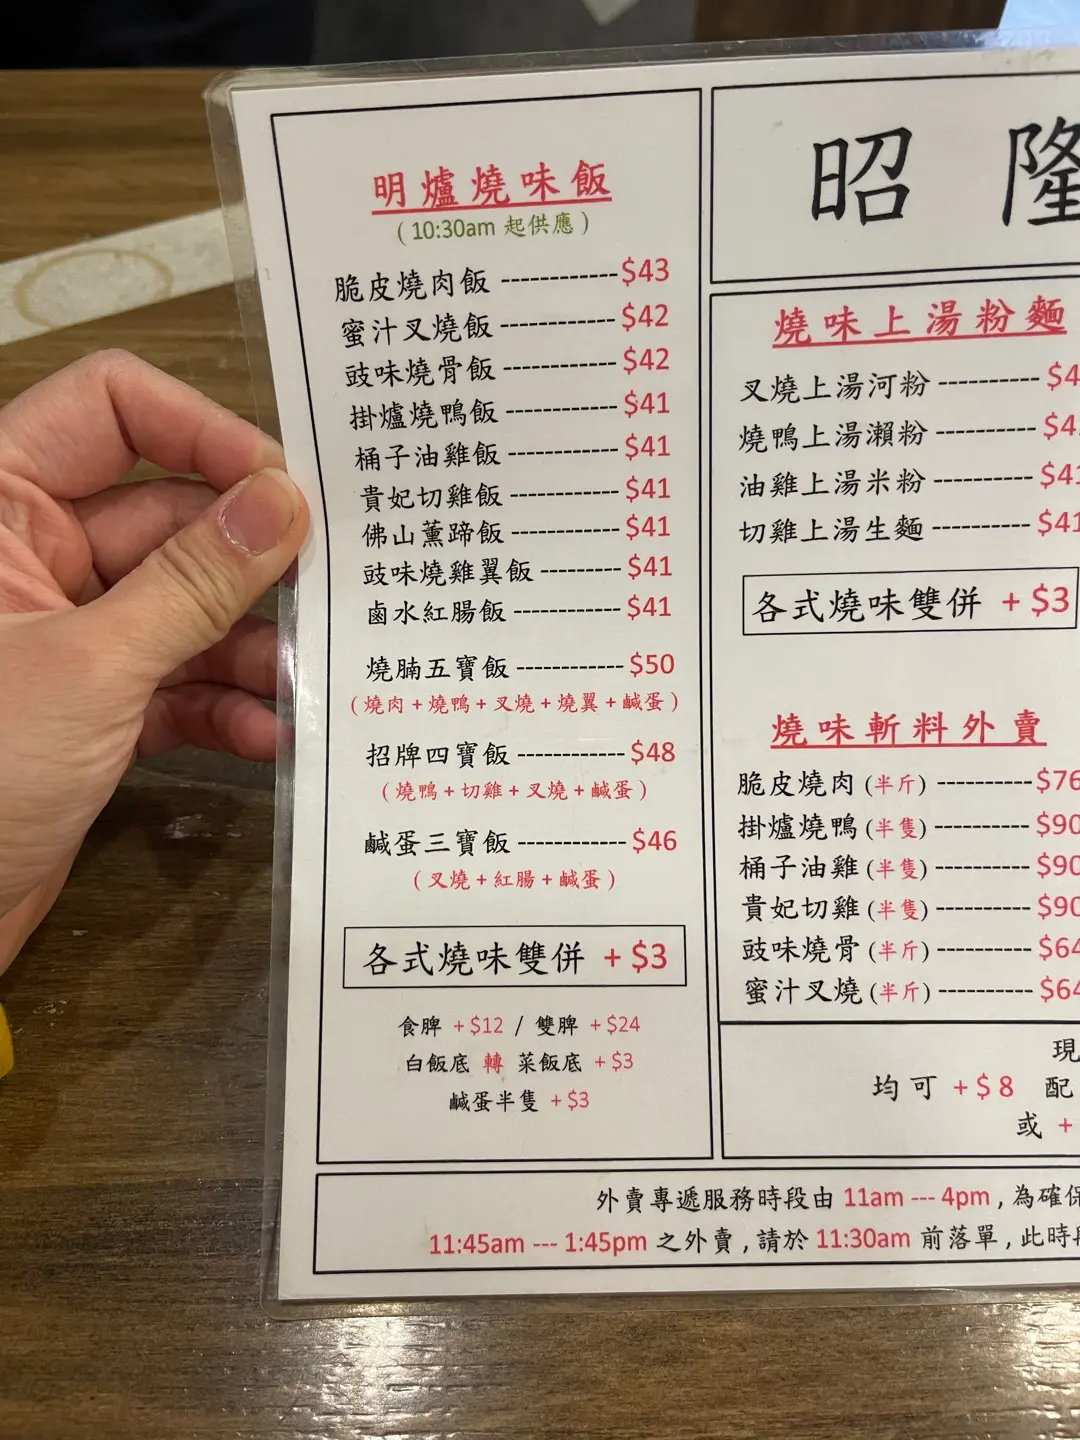 明爐燒味飯
( 10:30am 起供應 )
脆皮燒肉飯 ------------ $43
蜜汁叉燒飯 ------------ $42
豉味燒骨飯 ------------ $42
掛爐燒鴨飯 ------------ $41
桶子油雞飯 ------------ $41
貴妃切雞飯 ------------ $41
佛山薰蹄飯 ------------ $41
豉味燒雞翼飯 --------- $41
鹵水紅腸飯 ------------ $41
燒腩五寶飯 ------------ $50
( 燒肉 + 燒鴨 + 叉燒 + 燒翼 + 鹹蛋 )
招牌四寶飯 ------------ $48
( 燒鴨 + 切雞 + 叉燒 + 鹹蛋 )
鹹蛋三寶飯 ------------ $46
( 叉燒 + 紅腸 + 鹹蛋 )
各式燒味雙併 + $3
食脾 + $12 / 雙脾 + $24
白飯底 轉 菜飯底 + $3
鹹蛋半隻 + $3
昭隆
燒味上湯粉麵
叉燒上湯河粉 ---------- $4
燒鴨上湯瀨粉 ---------- $4
油雞上湯米粉 ---------- $41
切雞上湯生麵 ---------- $41
各式燒味雙併 + $3
燒味斬料外賣
脆皮燒肉 (半斤) ---------- $76
掛爐燒鴨 (半隻) ---------- $90
桶子油雞 (半隻) ---------- $90
貴妃切雞 (半隻) ---------- $90
豉味燒骨 (半斤) ---------- $64
蜜汁叉燒 (半斤) ---------- $64
現
均可 + $ 8 配
或 +
外賣專遞服務時段由 11am --- 4pm , 為確保
11:45am --- 1:45pm 之外賣 , 請於 11:30am 前落單 , 此時